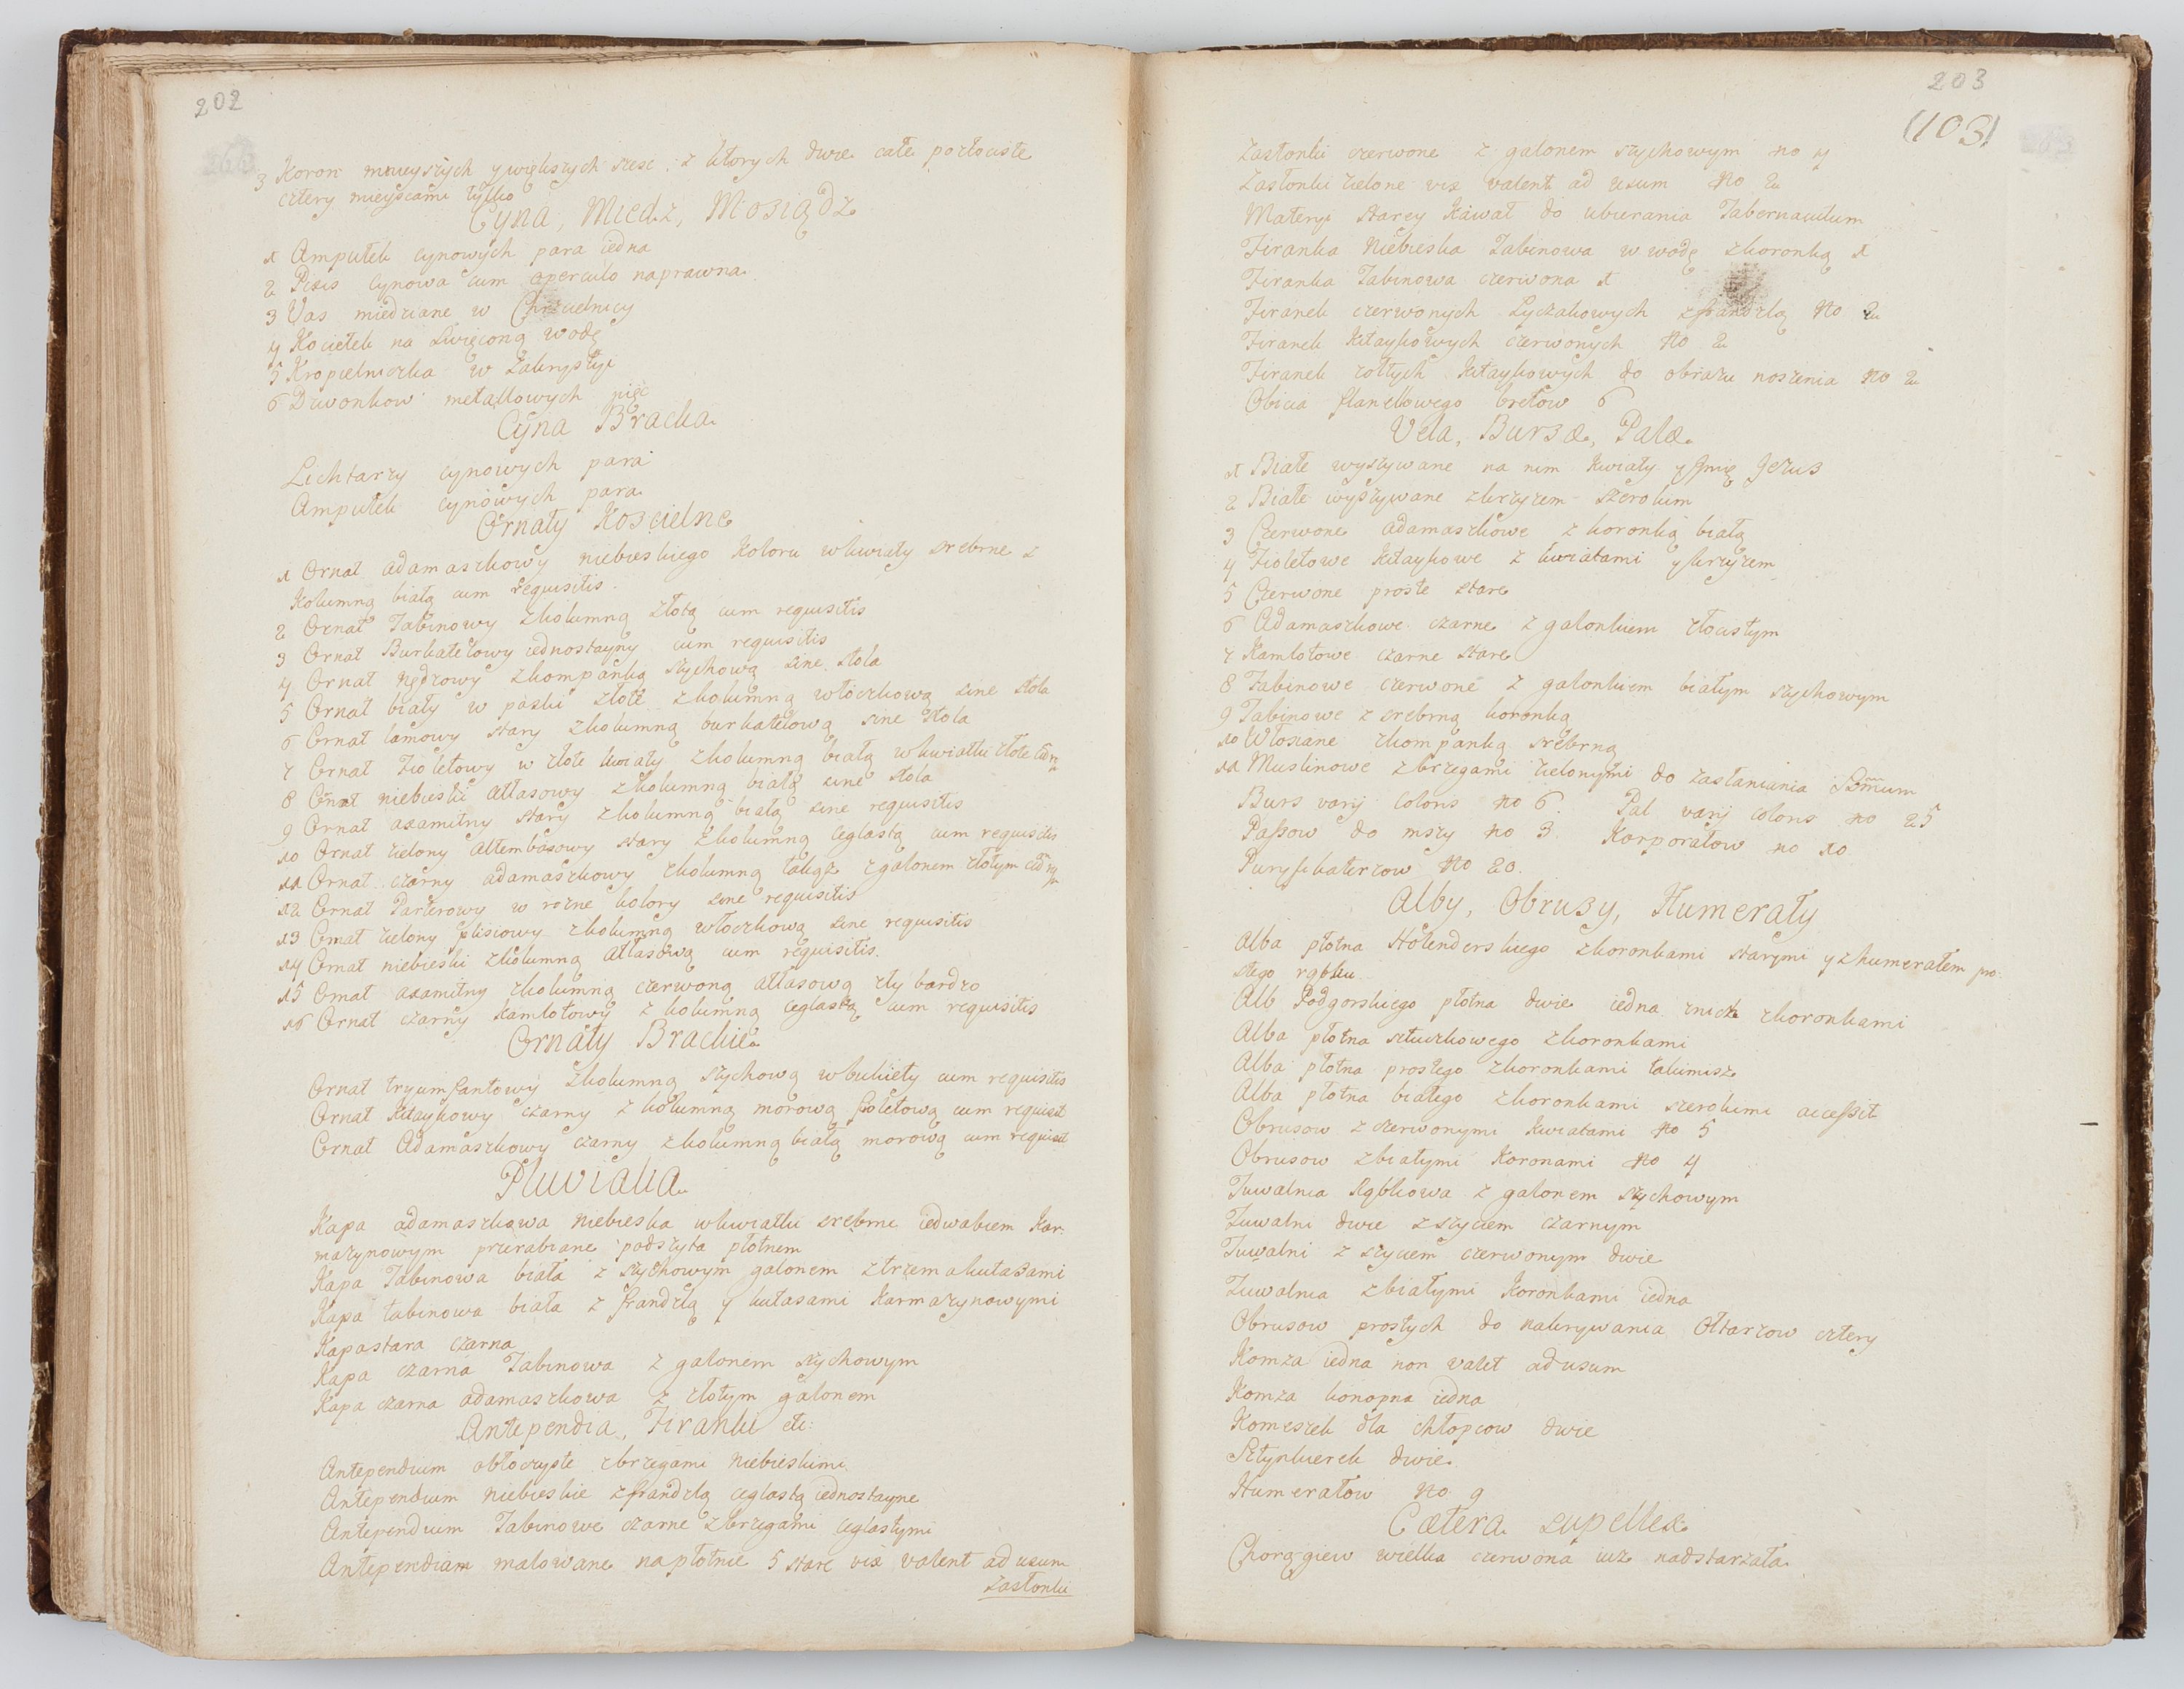 202
3 Koron mnieyszych y większych szesc, z ktorych dwie całe pozłociste
cztery mieyscami tylko
Cyna, Miedz, Mosiądz
1 Ampułek cynowych para iedna
2 Pixis cynowa cum operculo naprawna
3 Vas miedziane w Chrzcielnicy
4 Kociełek na święconą wodę
5 Kropielniczka w Zakrystyi
6 Dzwonkow metallowych pięc
Cyna Bracka
Lichtarzy cynowych para
Ampułek cynowych para
Ornaty Koscielne
1 Ornat adamaszkowy niebieskiego Koloru w kwiaty srebrne z
Kolumną białą cum requisitis
2 Ornat Tabinowy zkolumną złotą cum requisitis
3 Ornat Burkatelowy iednostayny cum requisitis
4 Ornat zkompanką szychową sine stola
5 Ornat biały w paski złote zkolumną włoczkową sine stola
6 Ornat lamowy stary zkolumną burkatelową sine stola
7 Ornat Fioletowy w złote kwiaty zkolumną białą w kwiatki złote
8 Ornat niebieski atłasowy zkolumną białą sine stola
9 Ornat axamitny stary zkolumną białą sine requisitis
10 Ornat zielony altembasowy stary zkolumną ceglastą cum requisitis
11 Ornat czarny adamaszkowy zkolumną takąż zgalonem złotym
12 Ornat Parterowy w rożne kolory sine requisitis
13 Ornat zielony plisiowy zkolumną włoczkową sine requisitis
14 Ornat niebieski zkolumną atłasową cum requisitis.
15 Ornat axamitny zkolumną czerwoną atłasową zły bardzo
16 Ornat czarny kamlotowy z kolumną ceglastą cum requisitis
Ornaty Brackie
Ornat tryumfantowy zkolumną szychową w bukiety cum requisitis
Ornat Kitaykowy czarny z kolumną morową fioletową cum requisit
Ornat Adamaszkowy czarny zkolumną białą morową cum requisit
Pluvialia
Kapa adamaszkowa niebieska w kwiatki srebrne iedwabiem Kar-
mazynowym przerabiane podszyta płotnem
Kapa Tabinowa biała z szychowym galonem ztrzema kutasami
Kapa tabinowa biała z frandzlą y kutasami Karmazynowymi
Kapa stara czarna
Kapa czarna Tabinowa z galonem szychowym
Kapa czarna adamaszkowa z złotym galonem
Antependia, Firanki etc:
Antependium obłoczyste zbrzegami Niebieskimi
Antependium Niebieskie zfrandzlą ceglastą iednostayne
Antependium Tabinowe czarne zbrzegami ceglastymi
Antependiam malowane na płotnie 5 stare vix valent ad usum
Zasłonki
203
(103)
Zasłonki czerwone z galonem szychowym no 4
Zasłonki zielone vix valent ad usum No 2
Materyi starey Kawał do ubierania Tabernaculum
Firanka Niebieska Tabinowa w wodę zkoronką 1
Firanka Tabinowa czerwona 1
Firanek czerwonych Łyczakowych zfrandzlą No 2
Firanek Kitaykowych czerwonych No 2
Firanek zołtych Kitaykowych do obrazu noszenia No 2
Obicia flanellowego bretow 6
Vela, Bursæ, Palæ
1 Białe wyszywane na nim Kwiaty y Jmię Jezus
2 Białe wyszywane zkrzyżem szerokim
3 Czerwone adamaszkowe z koronką białą
4 Fioletowe Kitaykowe z kwiatami y krzyżem
5 Czerwone proste stare
6 Adamaszkowe czarne z galonkiem złocistym
7 Kamlotowe czarne stare
8 Tabinowe czerwone z galonkiem białym szychowym
9 Tabinowe z srebrną koronką
10 Włosiane zkompanką srebrną
11 Muslinowe zbrzegami zielonymi do zasłaniania SSmum
Burs varij coloris no 6. Pal varij coloris no 25
Passow do mszy no 3. Korporałow no 10
Puryfikaterzow No 20.
Alby, Obrusy, Humerały
Alba płotna Holenderskiego zkoronkami starymi y zhumerałem pro-
stego rąbku
Alb Podgorskiego płotna dwie iedna znich zkoronkami
Alba płotna sztuczkowego zkoronkami
Alba płotna prostego zkoronkami takimisz
Alba płotna białego zkoronkami szerokimi accessit
Obrusow z czerwonymi Kwiatami No 5
Obrusow zbiałymi Koronami No 4
Tuwalnia Rąbkowa z galonem szychowym
Tuwalni dwie zszyciem czarnym
Tuwalni z szyciem czerwonym dwie
Tuwalnia zbiałymi Koronkami iedna
Obrusow prostych do nakrywania Ołtarzow cztery
Komza iedna non valet ad usum
Komza konopna iedna
Komeszek dla chłopcow dwie
Sztynkierek dwie
Humerałow No 9
Cætera supellex
Chorągiew wielka czerwona iuż nadstarzała